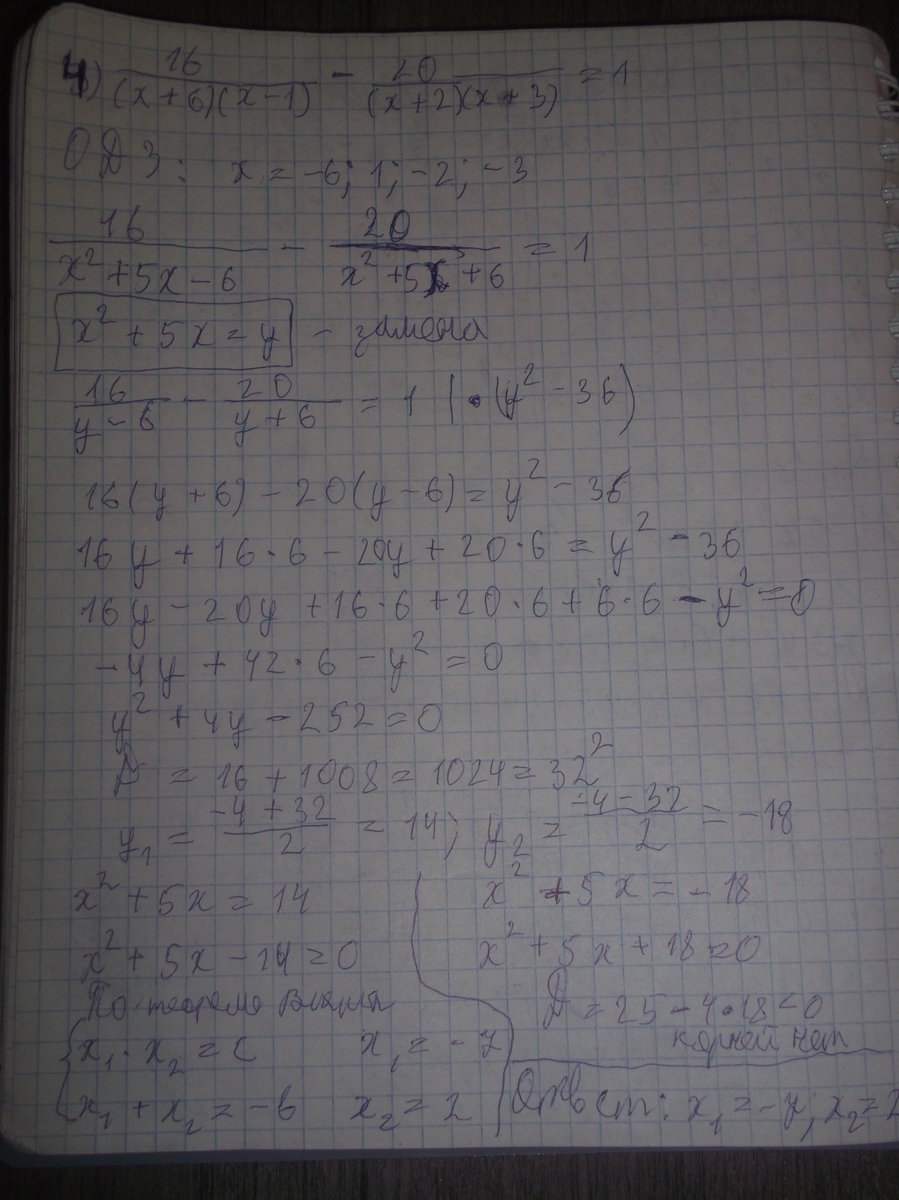 4) 16/((x+6)(x-1)) - 20/((x+2)(x+3)) = 1
ОДЗ: x = -6; 1; -2; -3
16/(x² + 5x - 6) - 20/(x² + 5x + 6) = 1
x² + 5x = y - замена
16/(y - 6) - 20/(y + 6) = 1 | · (y² - 36)
16(y + 6) - 20(y - 6) = y² - 36
16y + 16·6 - 20y + 20·6 = y² - 36
16y - 20y + 16·6 + 20·6 + 6·6 - y² = 0
-4y + 42·6 - y² = 0
y² + 4y - 252 = 0
D = 16 + 1008 = 1024 = 32²
y₁ = (-4 + 32)/2 = 14; y₂ = (-4 - 32)/2 = -18
x² + 5x = 14
x² + 5x - 14 = 0
По теореме Виета
x₁ · x₂ = c x₁ = -7
x₁ + x₂ = -b x₂ = 2
x² + 5x = -18
x² + 5x + 18 = 0
D = 25 - 4·18 < 0
корней нет
Ответ: x₁ = -7; x₂ = 2